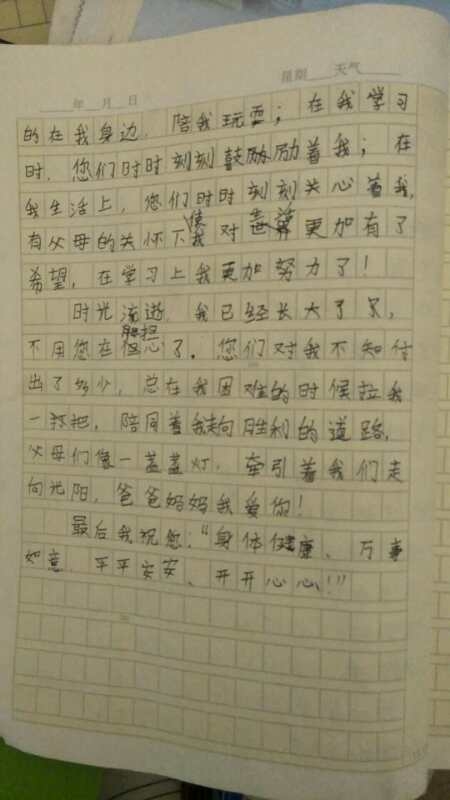 年 月 日 星期 天气
的在我身边，陪我玩耍；在我学习
时，您们时时刻刻鼓励励着我；在
我生活上，您们时时刻刻关心着我，
使
有父母的关怀下我对世界更加有了
希望，在学习上我更加努力了！
时光流逝，我已经长大了
不用您在担心了。您们对我不知付
出了多少，总在我困难的时候拉我
一把，陪同着我走向胜利的道路，
父母们像一盏盏灯，牵引着我们走
向光阳，爸爸妈妈我爱你！
最后我祝您：“身体健康、万事
如意、平平安安、开开心心！”